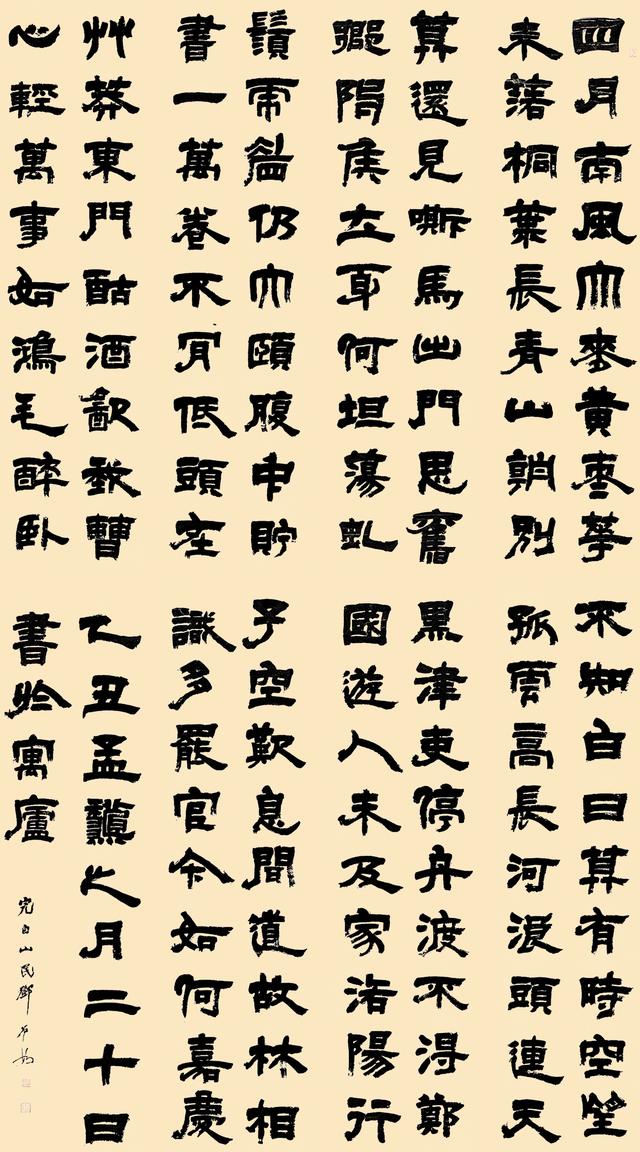 四月南風大麥黃棗華
未落桐葉長青山朝別
莫還見嘶馬出門思舊
鄉陳侯立身何坦蕩虬
鬚虎眉仍大頤腹中貯
書一萬卷不肎低頭在
艸莽東門酤酒歓我曹
心輕萬事如鴻毛醉卧
不知白日莫有時空望
孤雲高長河浪頭連天
黑津吏停舟渡不淂鄭
國遊人未及家洛陽行
子空歎息聞道故林相
識多罷官今如何嘉慶
乙丑孟龝七月二十日
書於寓廬
完白山民鄧石如